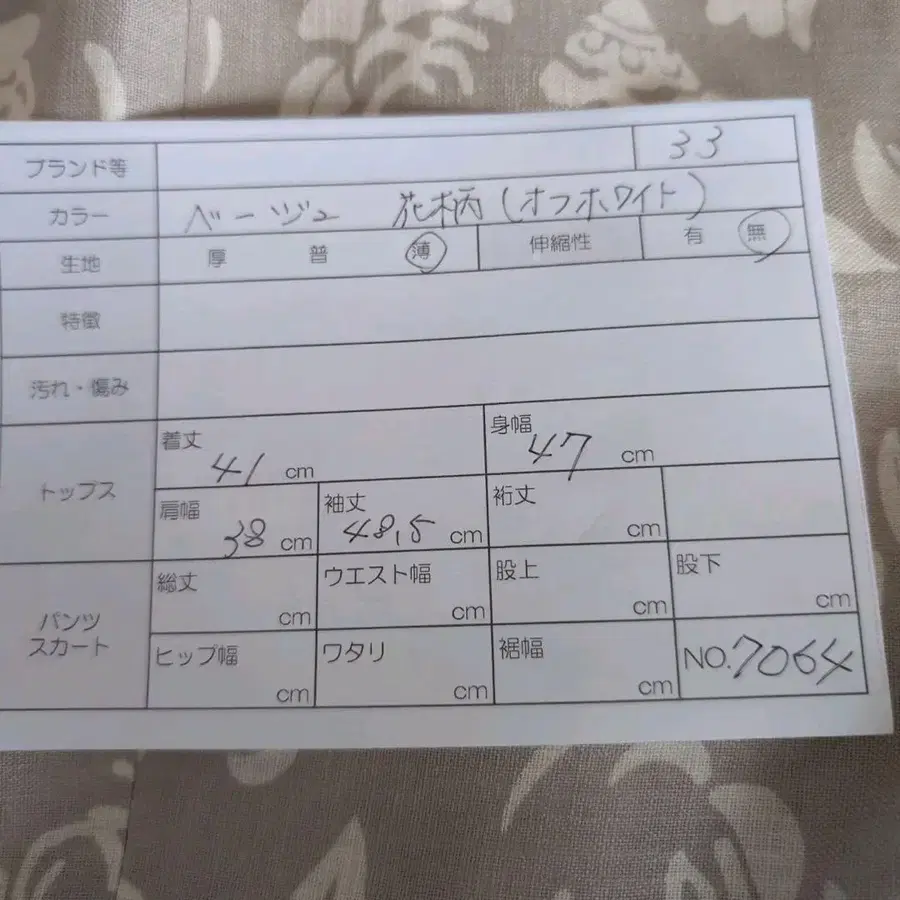 ブランド等 33
カラー ベージュ 花柄(オフホワイト)
生地 厚 普 薄 伸縮性 有 無
特徴
汚れ・傷み
トップス
着丈 41 cm 身幅 47 cm
肩幅 38 cm 袖丈 48,5 cm 裄丈 cm
パンツ
スカート
総丈 cm ウエスト幅 cm 股上 cm 股下 cm
ヒップ幅 cm ワタリ cm 裾幅 cm NO.7064